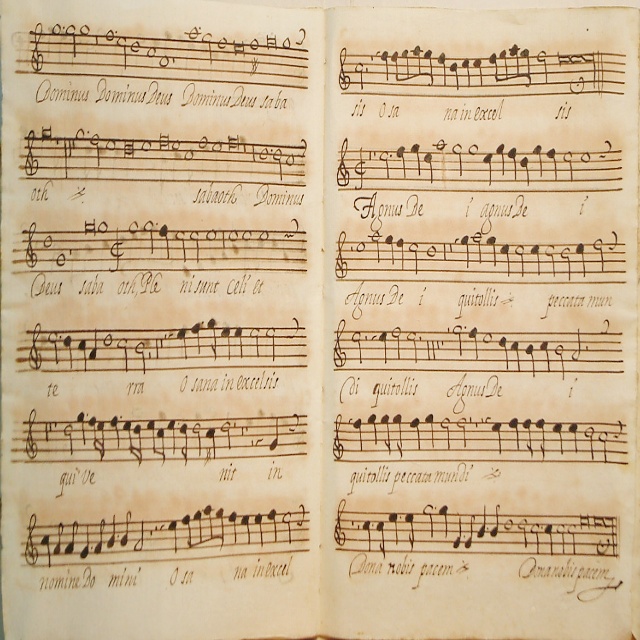 Dominus Dominus Deus Dominus Deus saba
oth sabaoth Dominus
Deus saba oth, Ple ni sunt Celi et
te rra Osana in excelsis
qui ve nit in
nomine Do mini Osa na in excel
sis Osa na in excel sis
Agnus De i agnus De i
Agnus De i qui tollis peccata mun
Di qui tollis Agnus De i
qui tollis peccata mundi
Dona nobis pacem Dona nobis pacem